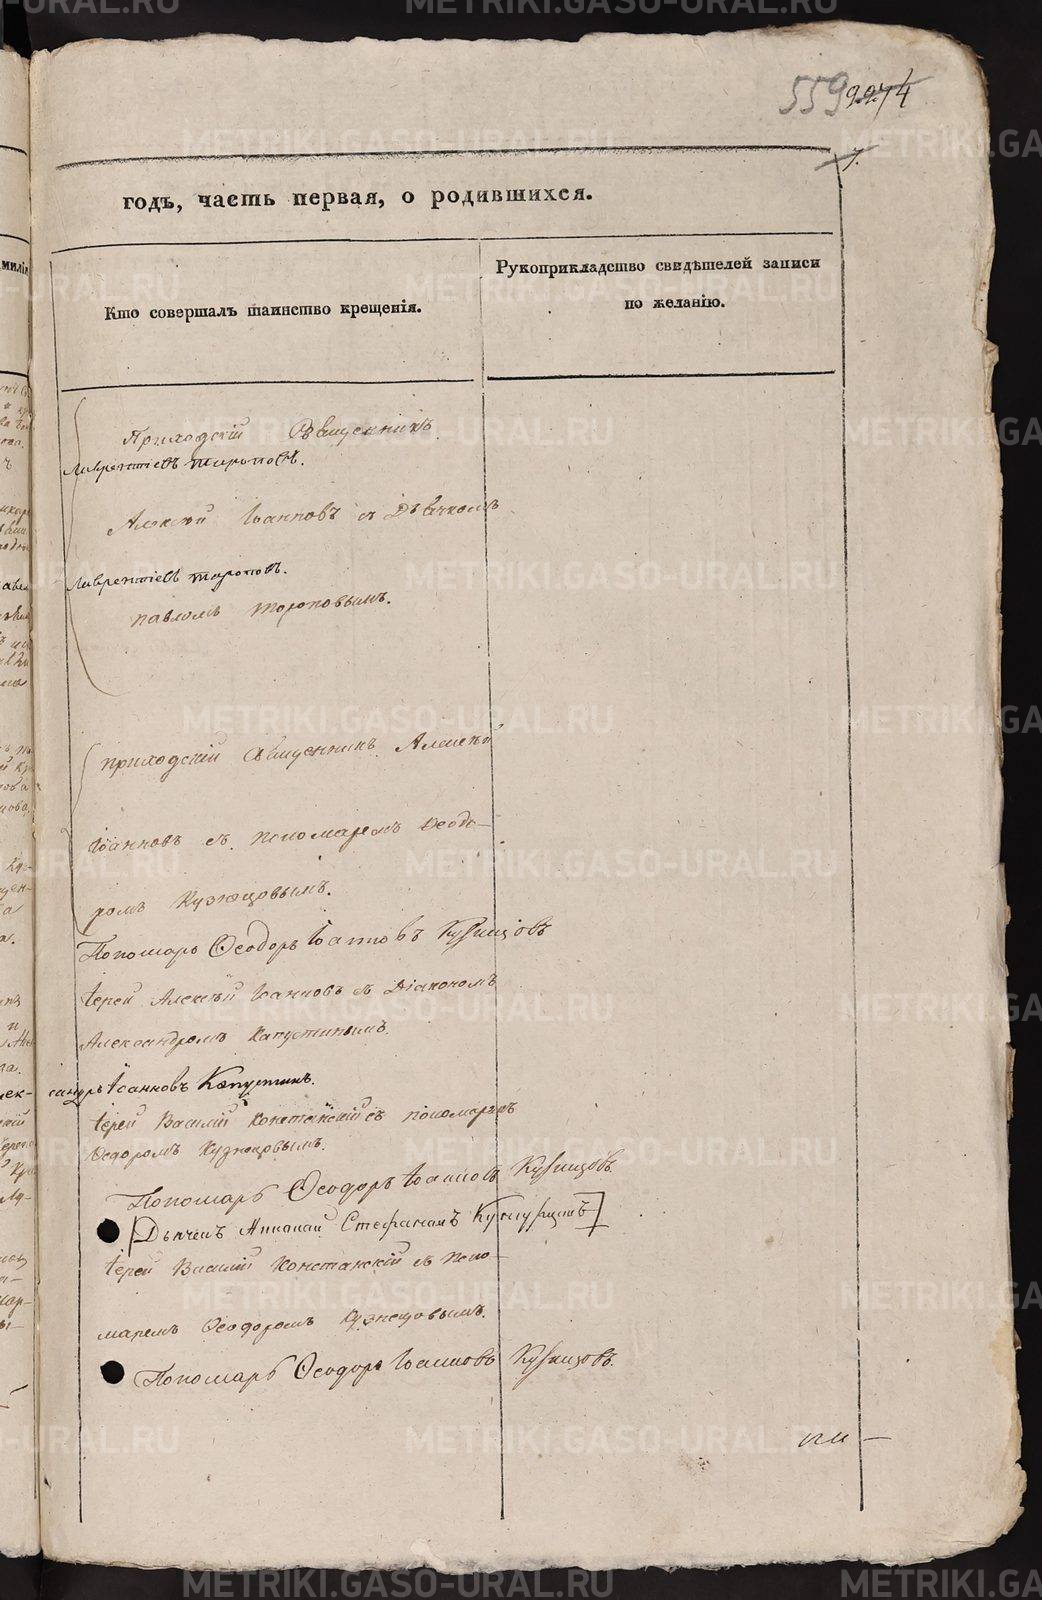 559 9274
годъ, часть первая, о родившихся.
Кто совершалъ таинство крещенія.
Рукоприкладство свидѣтелей записи
по желанію.
Приходскій Священникъ
Лаврентіевъ Тороповъ.
Алексѣй Іоанновъ съ Дьячкомъ
Лаврентіевъ Тороповъ.
павломъ Тороповымъ.
приходскій Священникъ Алексѣй
Іоанновъ съ пономаремъ Ѳеодо-
ромъ Кузнецовымъ.
Пономарь Ѳеодоръ Іоанновъ Кузнецовъ
Іерей Алексѣй Іоанновъ съ Діакономъ
Александромъ Капустинымъ.
сандръ Іоанновъ Капустинъ.
Іерей Василій Констанскій съ пономаремъ
Ѳедоромъ Кузнецовымъ.
Пономарь Ѳеодоръ Іоанновъ Кузнецовъ.
Іерей Василій Констанскій съ Поно-
маремъ Ѳеодоромъ Кузнецовымъ.
Пономарь Ѳеодоръ Іоанновъ Кузнецовъ.
METRIKI.GASO-URAL.RU